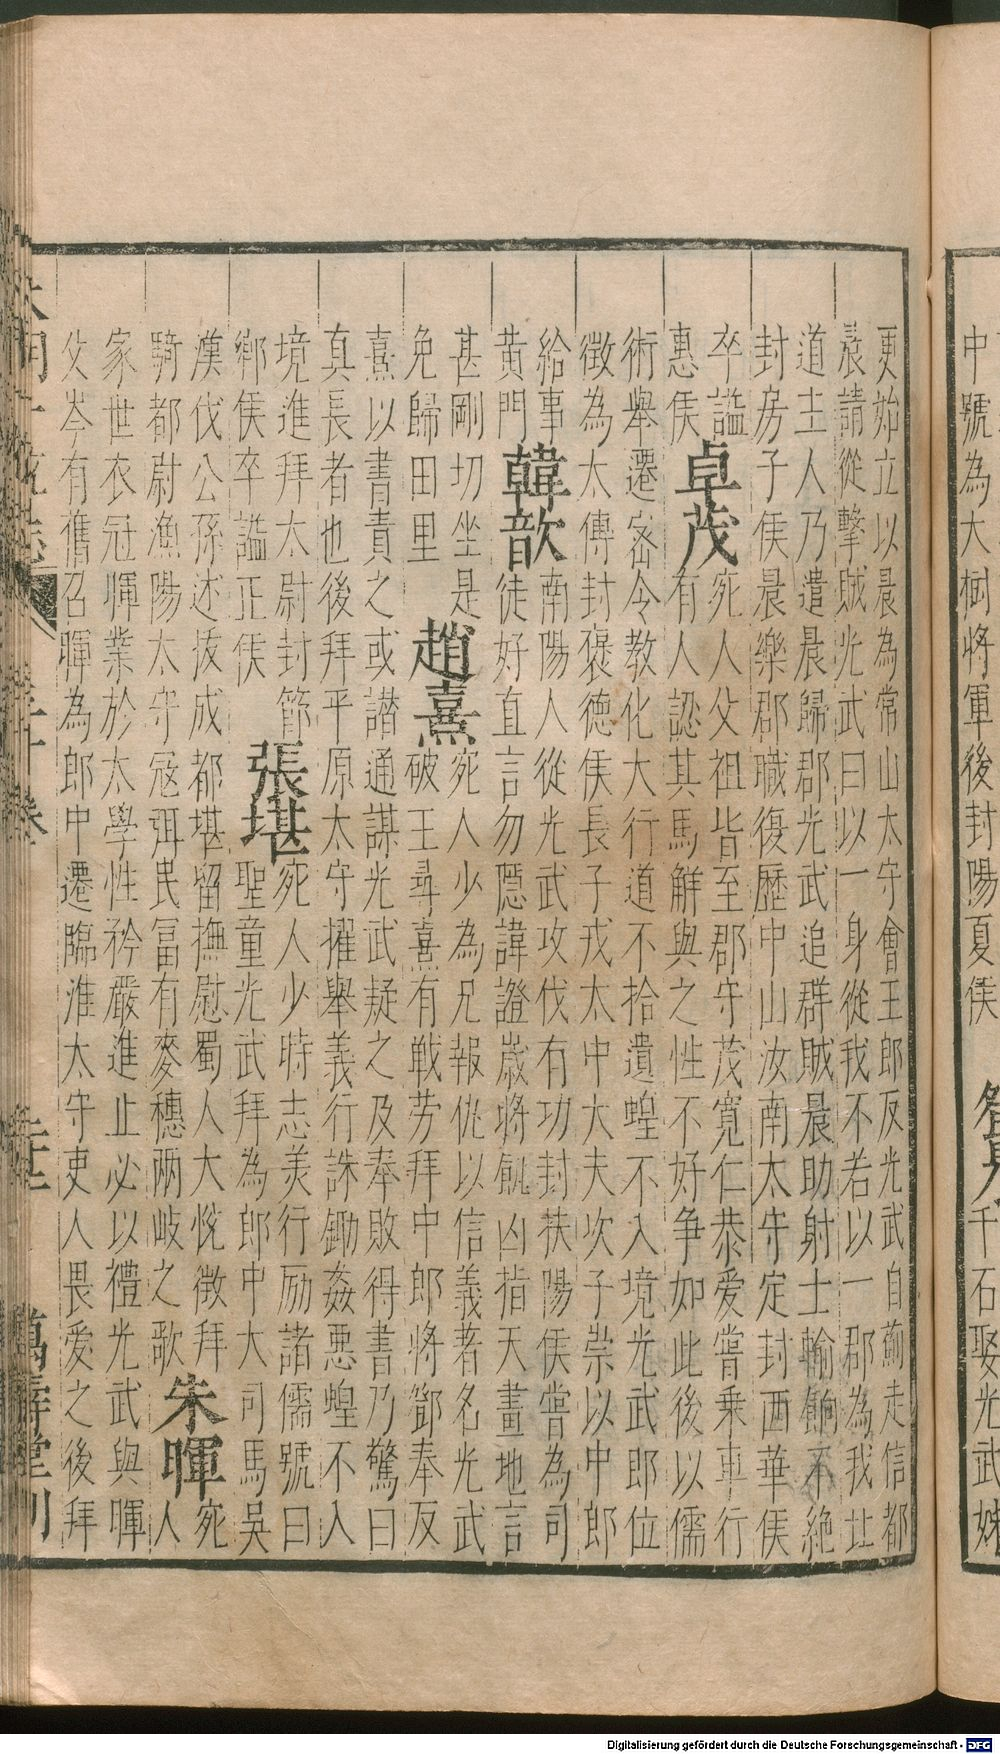 中號為大樹將軍後封陽夏侯
千石娶光武姊
更始立以晨為常山太守會王郎反光武自薊走信都
晨請從擊賊光武曰以一身從我不若以一郡為我北
道主人乃遣晨歸郡光武追群賊晨助射士輸餉不絶
封房子侯晨樂郡職復歷中山汝南太守定封西華侯
卒謚
惠侯
卓茂
宛人父祖皆至郡守茂寬仁恭爱甞乗車行
有人認其馬解與之性不好争如此後以儒
術舉遷宻令教化大行道不拾遺蝗不入境光武郎位
徴為太傅封褒德侯長子戎太中大夫次子崇以中郎
給事
黄門
韓歆
南陽人從光武攻伐有功封扶陽侯甞為司
徒好直言勿隠諱證嵗將飢凶指天畫地言
甚剛切坐是
免歸田里
趙熹
宛人少為兄報仇以信義著名光武
破王尋熹有戦劳拜中郎將鄧奉反
熹以書責之或譛通謀光武疑之及奉敗得書乃驚曰
真長者也後拜平原太守擢舉義行誅鋤姦惡蝗不入
境進拜太尉封節
鄉侯卒謚正侯
張堪
宛人少時志美行励諸儒號曰
聖童光武拜為郎中大司馬吳
漢伐公孫述拔成都堪留撫慰蜀人大悅徴拜
騎都尉漁陽太守冦弭民冨有麥穗两岐之歌
朱暉
宛
人
家世衣冠暉業於太學性矜嚴進止必以禮光武與暉
父岑有舊召暉為郎中遷臨淮太守吏人畏爱之後拜
萬壽堂刋
Digitalisierung gefördert durch die Deutsche Forschungsgemeinschaft - DFG